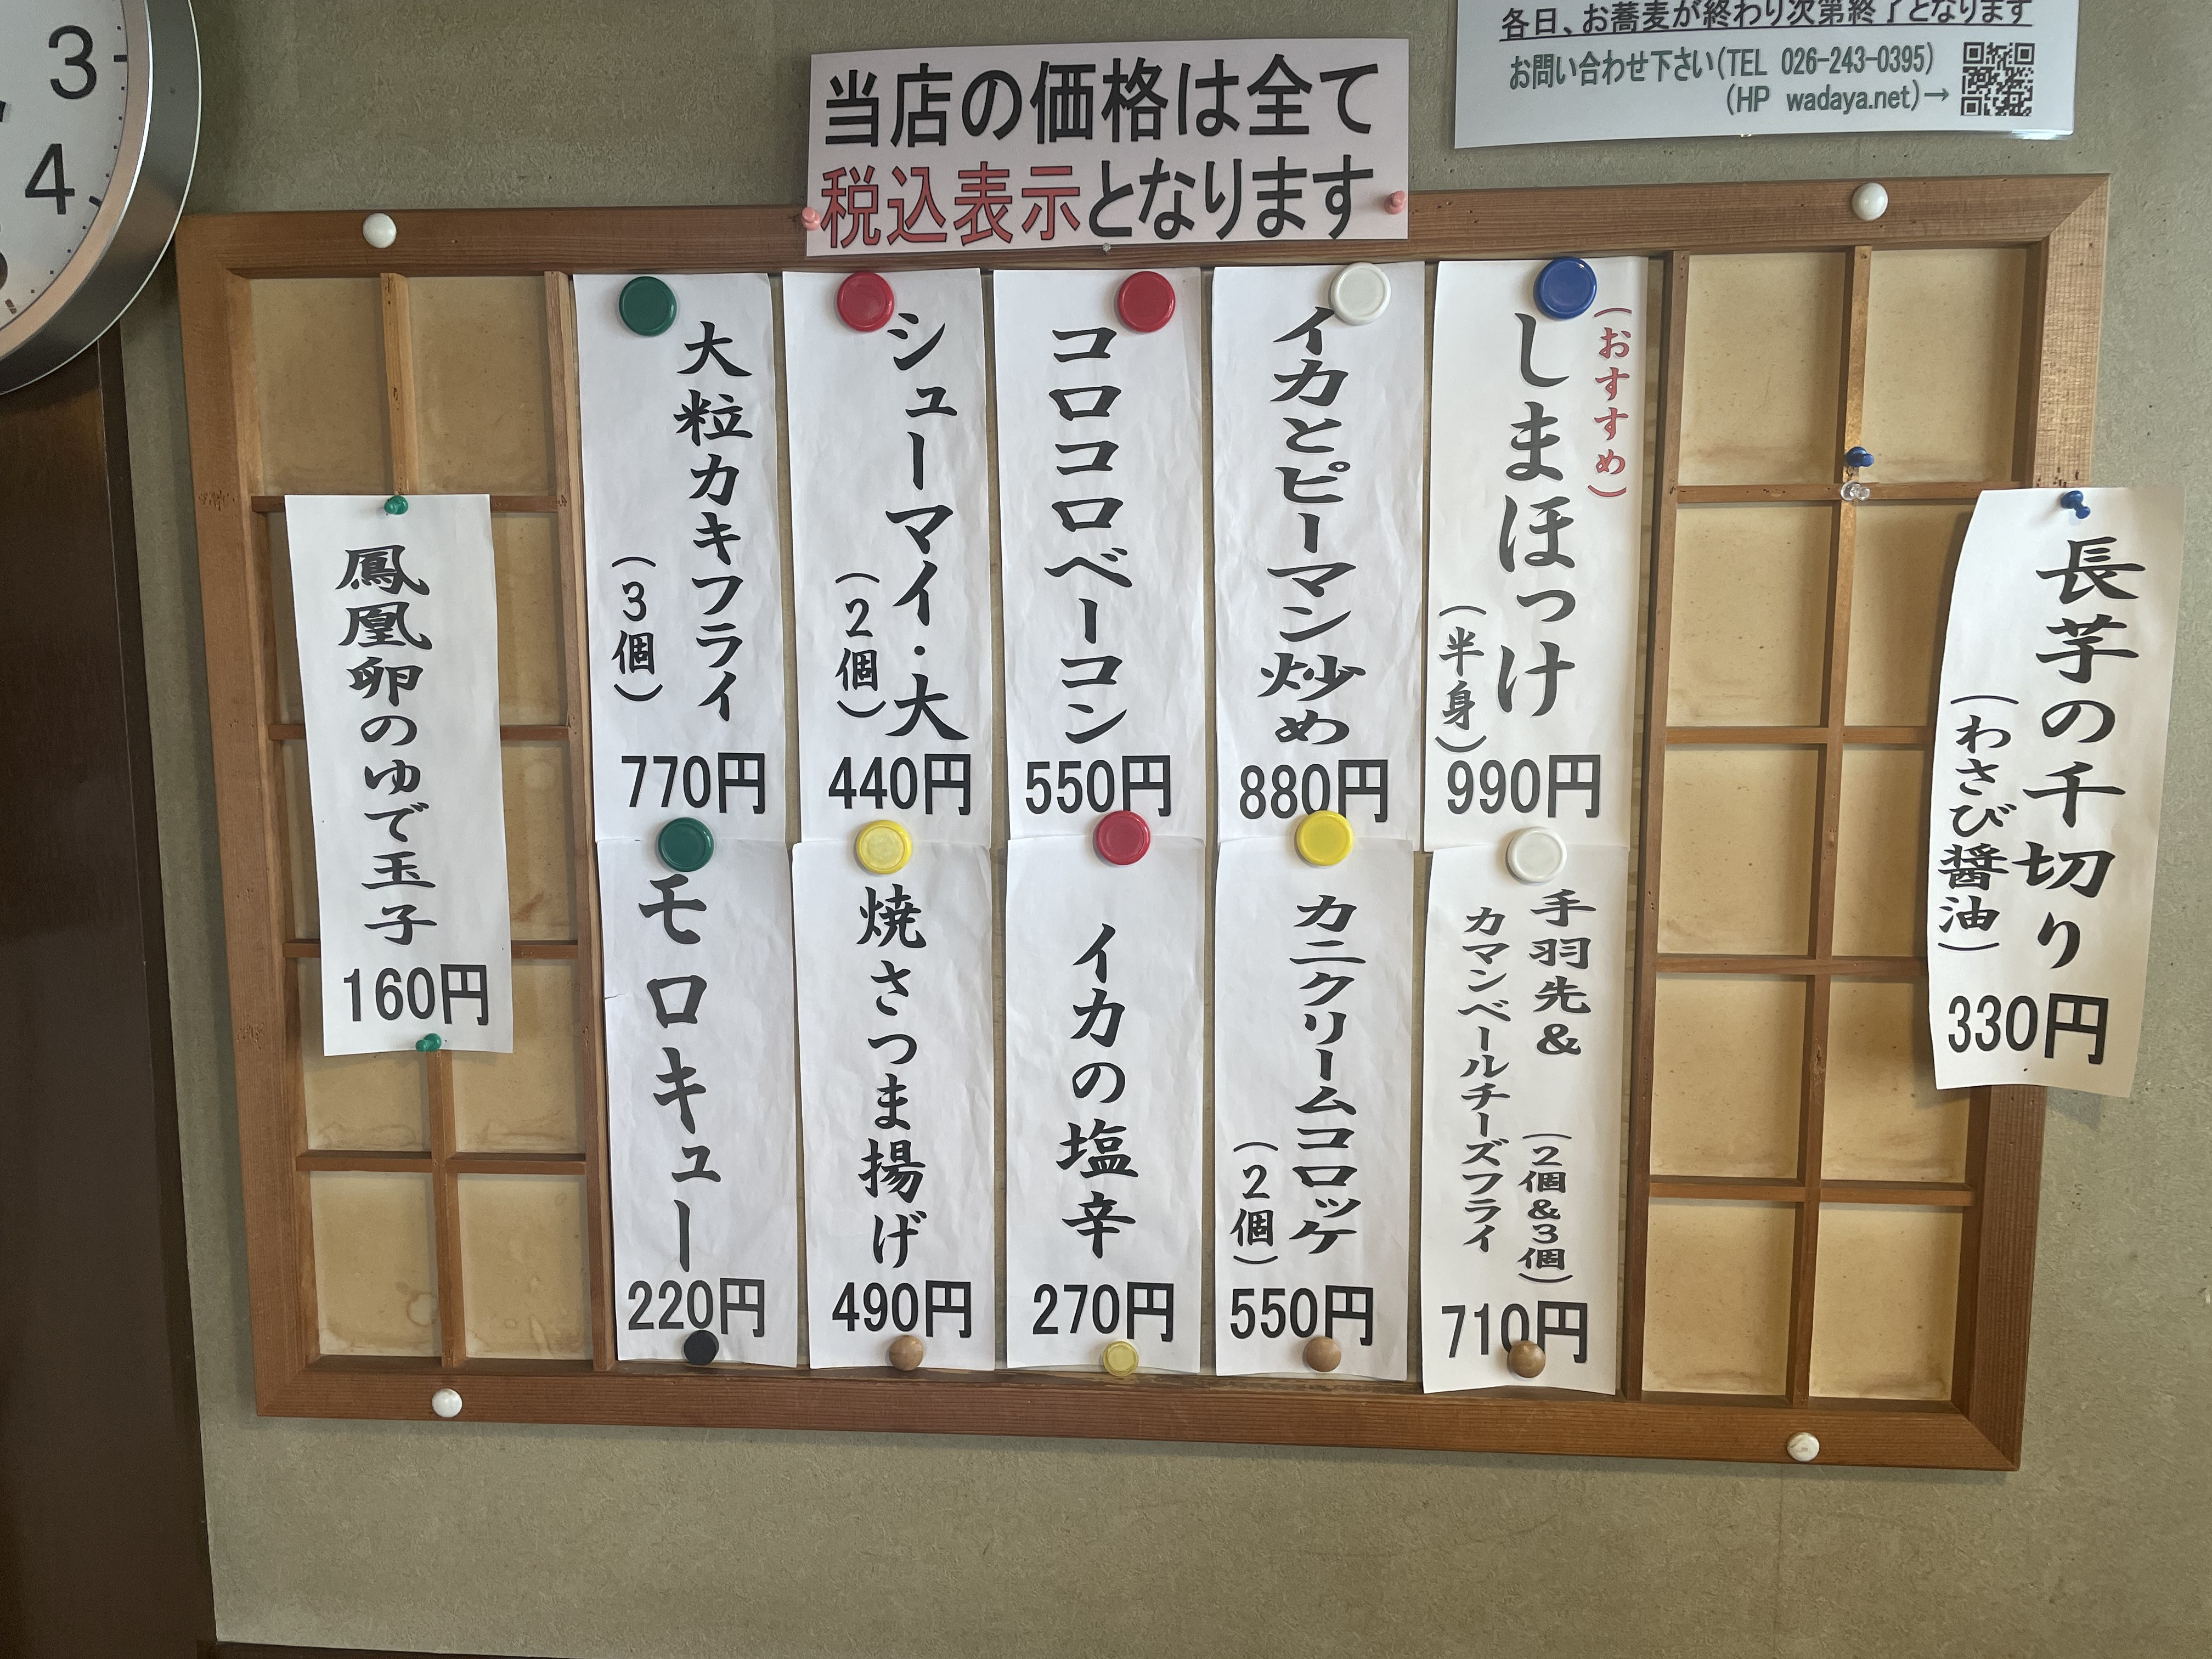 3
4
各日、お蕎麦が終わり次第終了となります
お問い合わせ下さい(TEL 026-243-0395)
(HP wadaya.net)→
当店の価格は全て
税込表示となります
長芋の千切り
(わさび醤油)
330円
(おすすめ)
しまほっけ
(半身)
990円
イカとピーマン炒め
880円
コロコロベーコン
550円
シューマイ・大
(2個)
440円
大粒カキフライ
(3個)
770円
手羽先&
(2個&3個)
カマンベールチーズフライ
710円
カニクリームコロッケ
(2個)
550円
イカの塩辛
270円
焼さつま揚げ
490円
モロキュー
220円
鳳凰卵のゆで玉子
160円